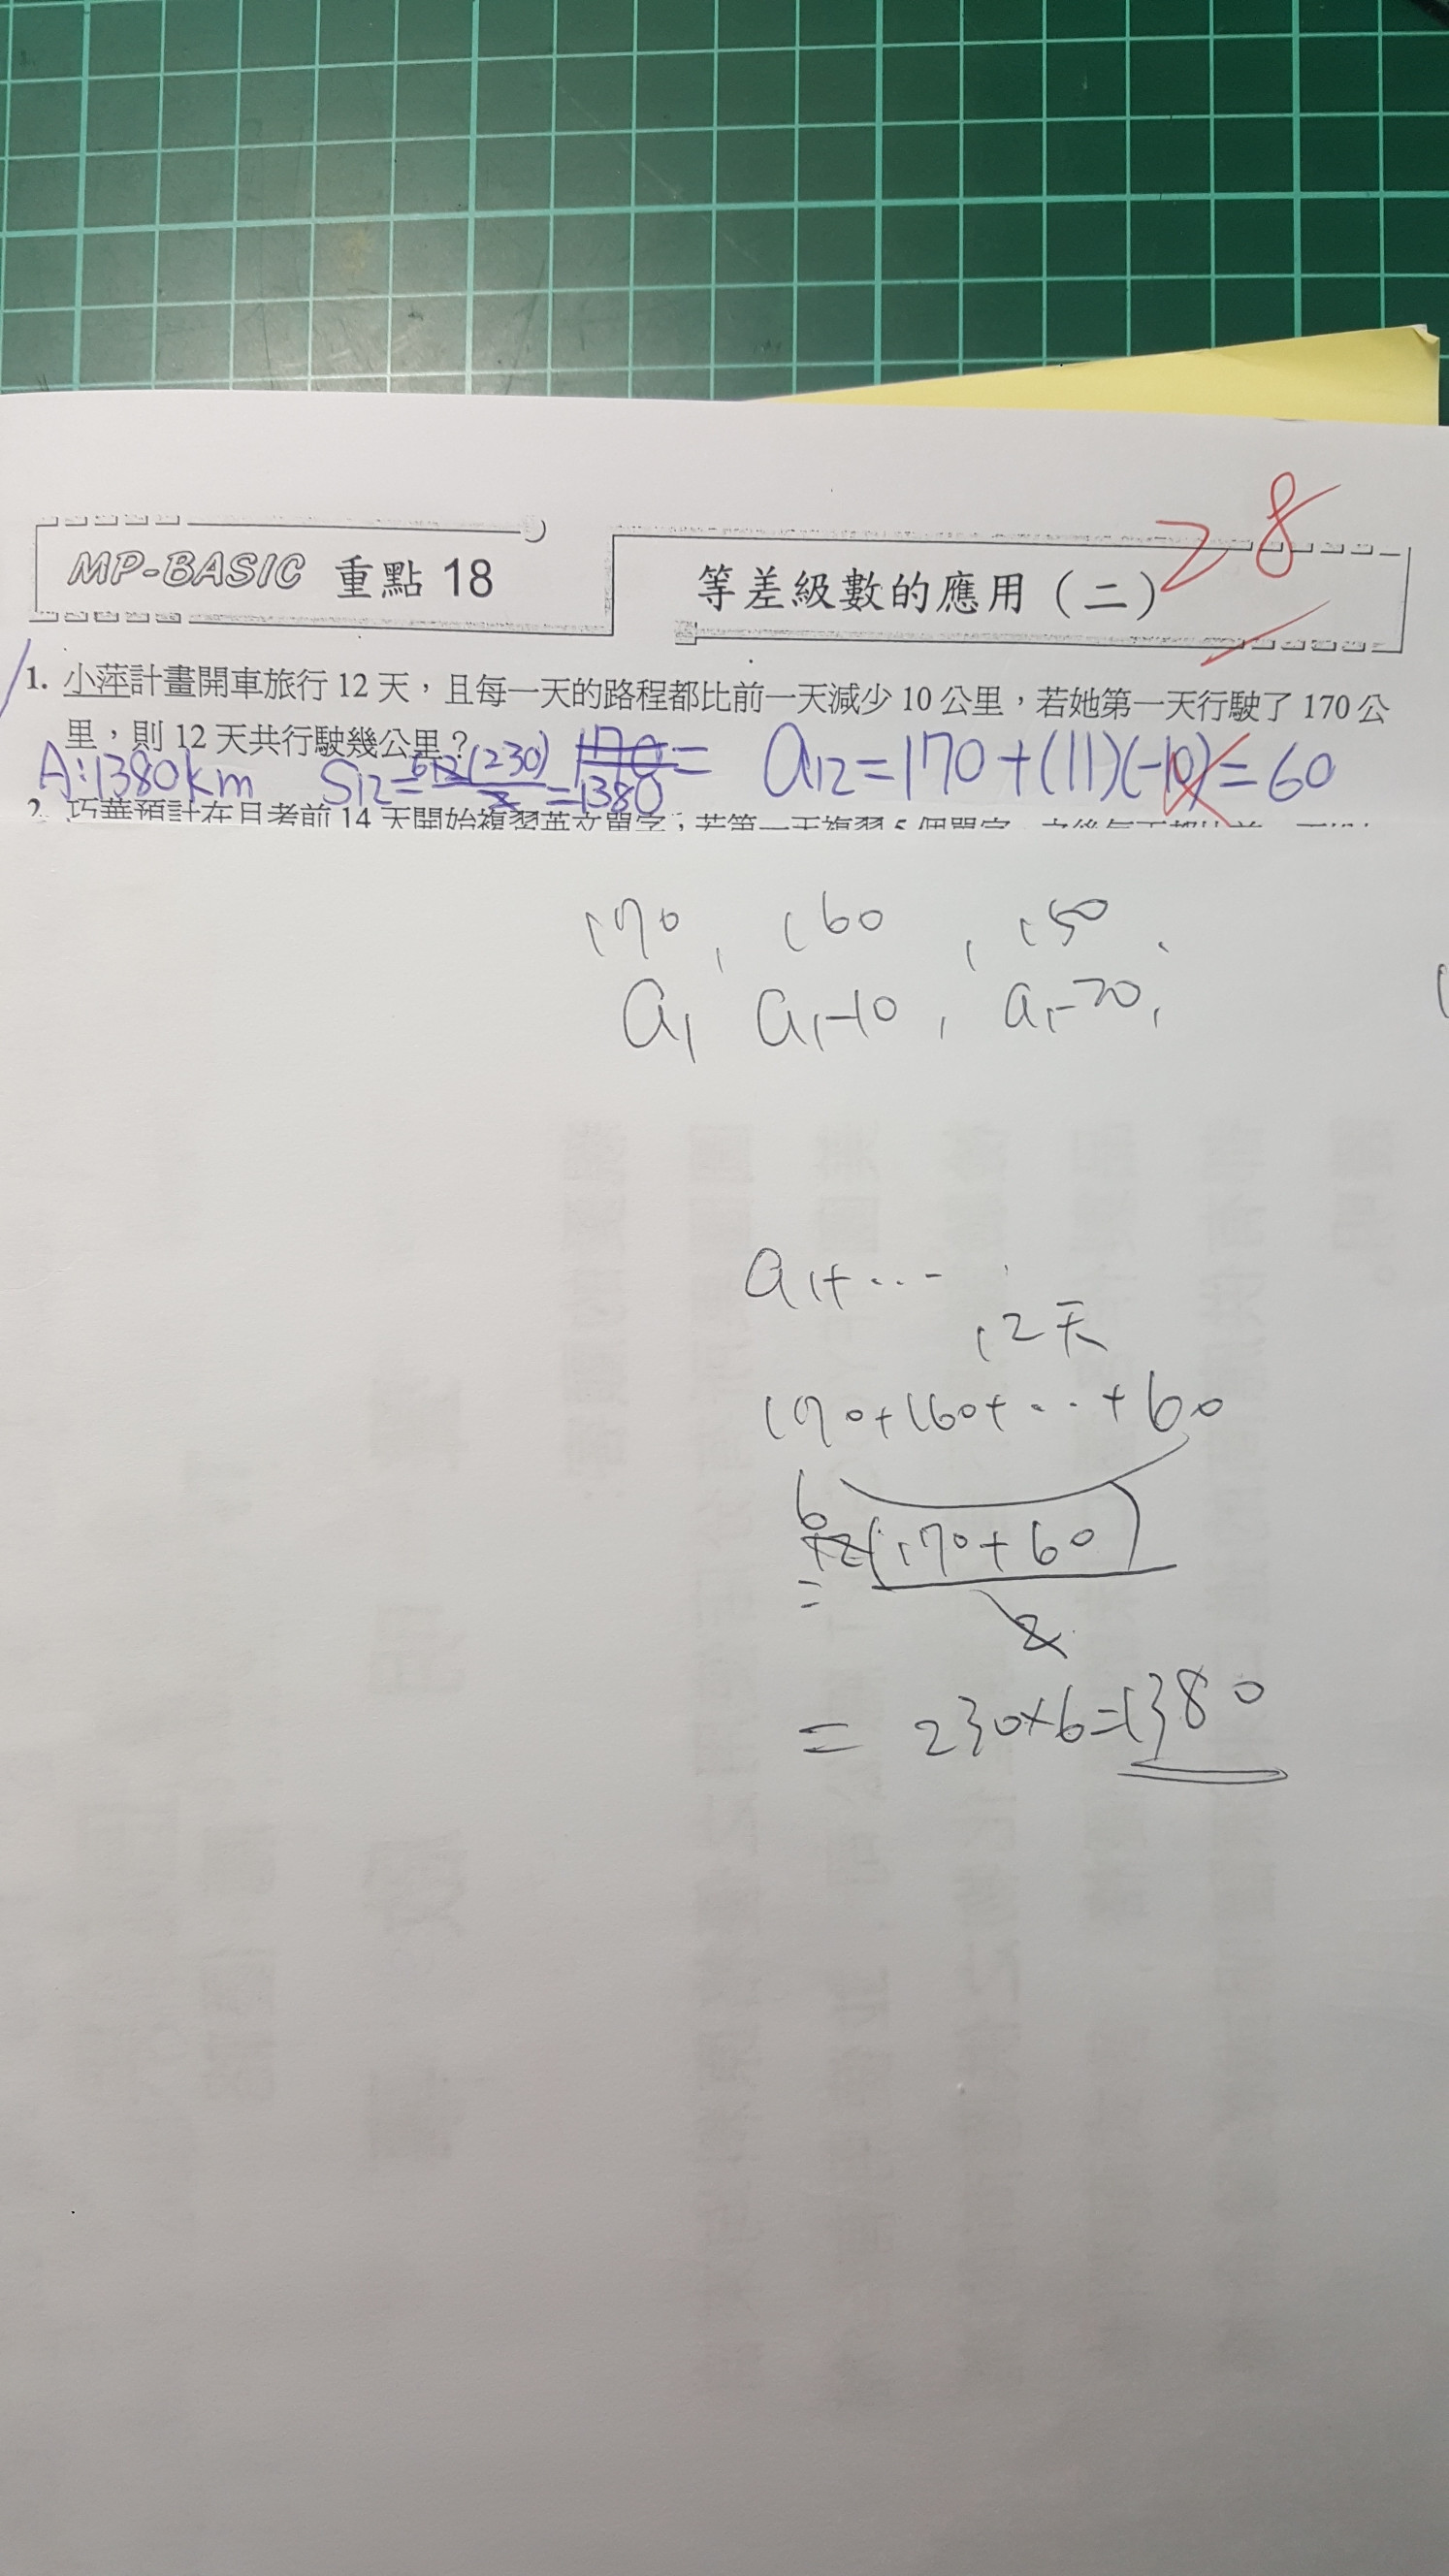 28
MP-BASIC 重點 18 等差級數的應用（二）
1. 小萍計畫開車旅行 12 天，且每一天的路程都比前一天減少 10 公里，若她第一天行駛了 170 公
里，則 12 天共行駛幾公里？
A:1380km S12=612(230)/2 =1380 170= a12=170+(11)(-10)=60
2. 巧華預計在月考前 14 天開始複習英文單字，若第一天複習 5 個單字，之後每天都比前一
170, 160, 150,
a1 a1-10, a1-20,
a1+...
12天
170+160+...+60
6
=12(170+60)
2
=230×6=1380